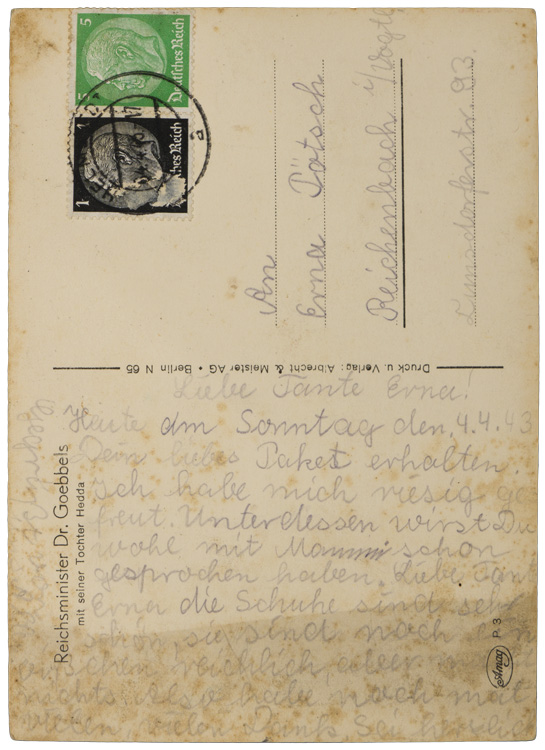 5
5
Deutsches Reich
1
1
sches Reich
An
Erna Pötsch
Reichenbach i/Vogtl
93
Druck u. Verlag: Albrecht & Meister AG • Berlin N 65
Reichsminister Dr. Goebbels
mit seiner Tochter Hedda
Amag P 3
Liebe Tante Erna!
Heute am Sonntag den 4.4.43
Dein liebes Paket erhalten.
Ich habe mich riesig ge
freut. Unterdessen wirst Du
wohl mit Mammi schon
gesprochen haben. Liebe Tant
Erna die Schuhe sind sehr
schön sie sind noch ein
bißchen reichlich aber
nichts also habe noch mal
vielen, vielen Dank Sei herzlich